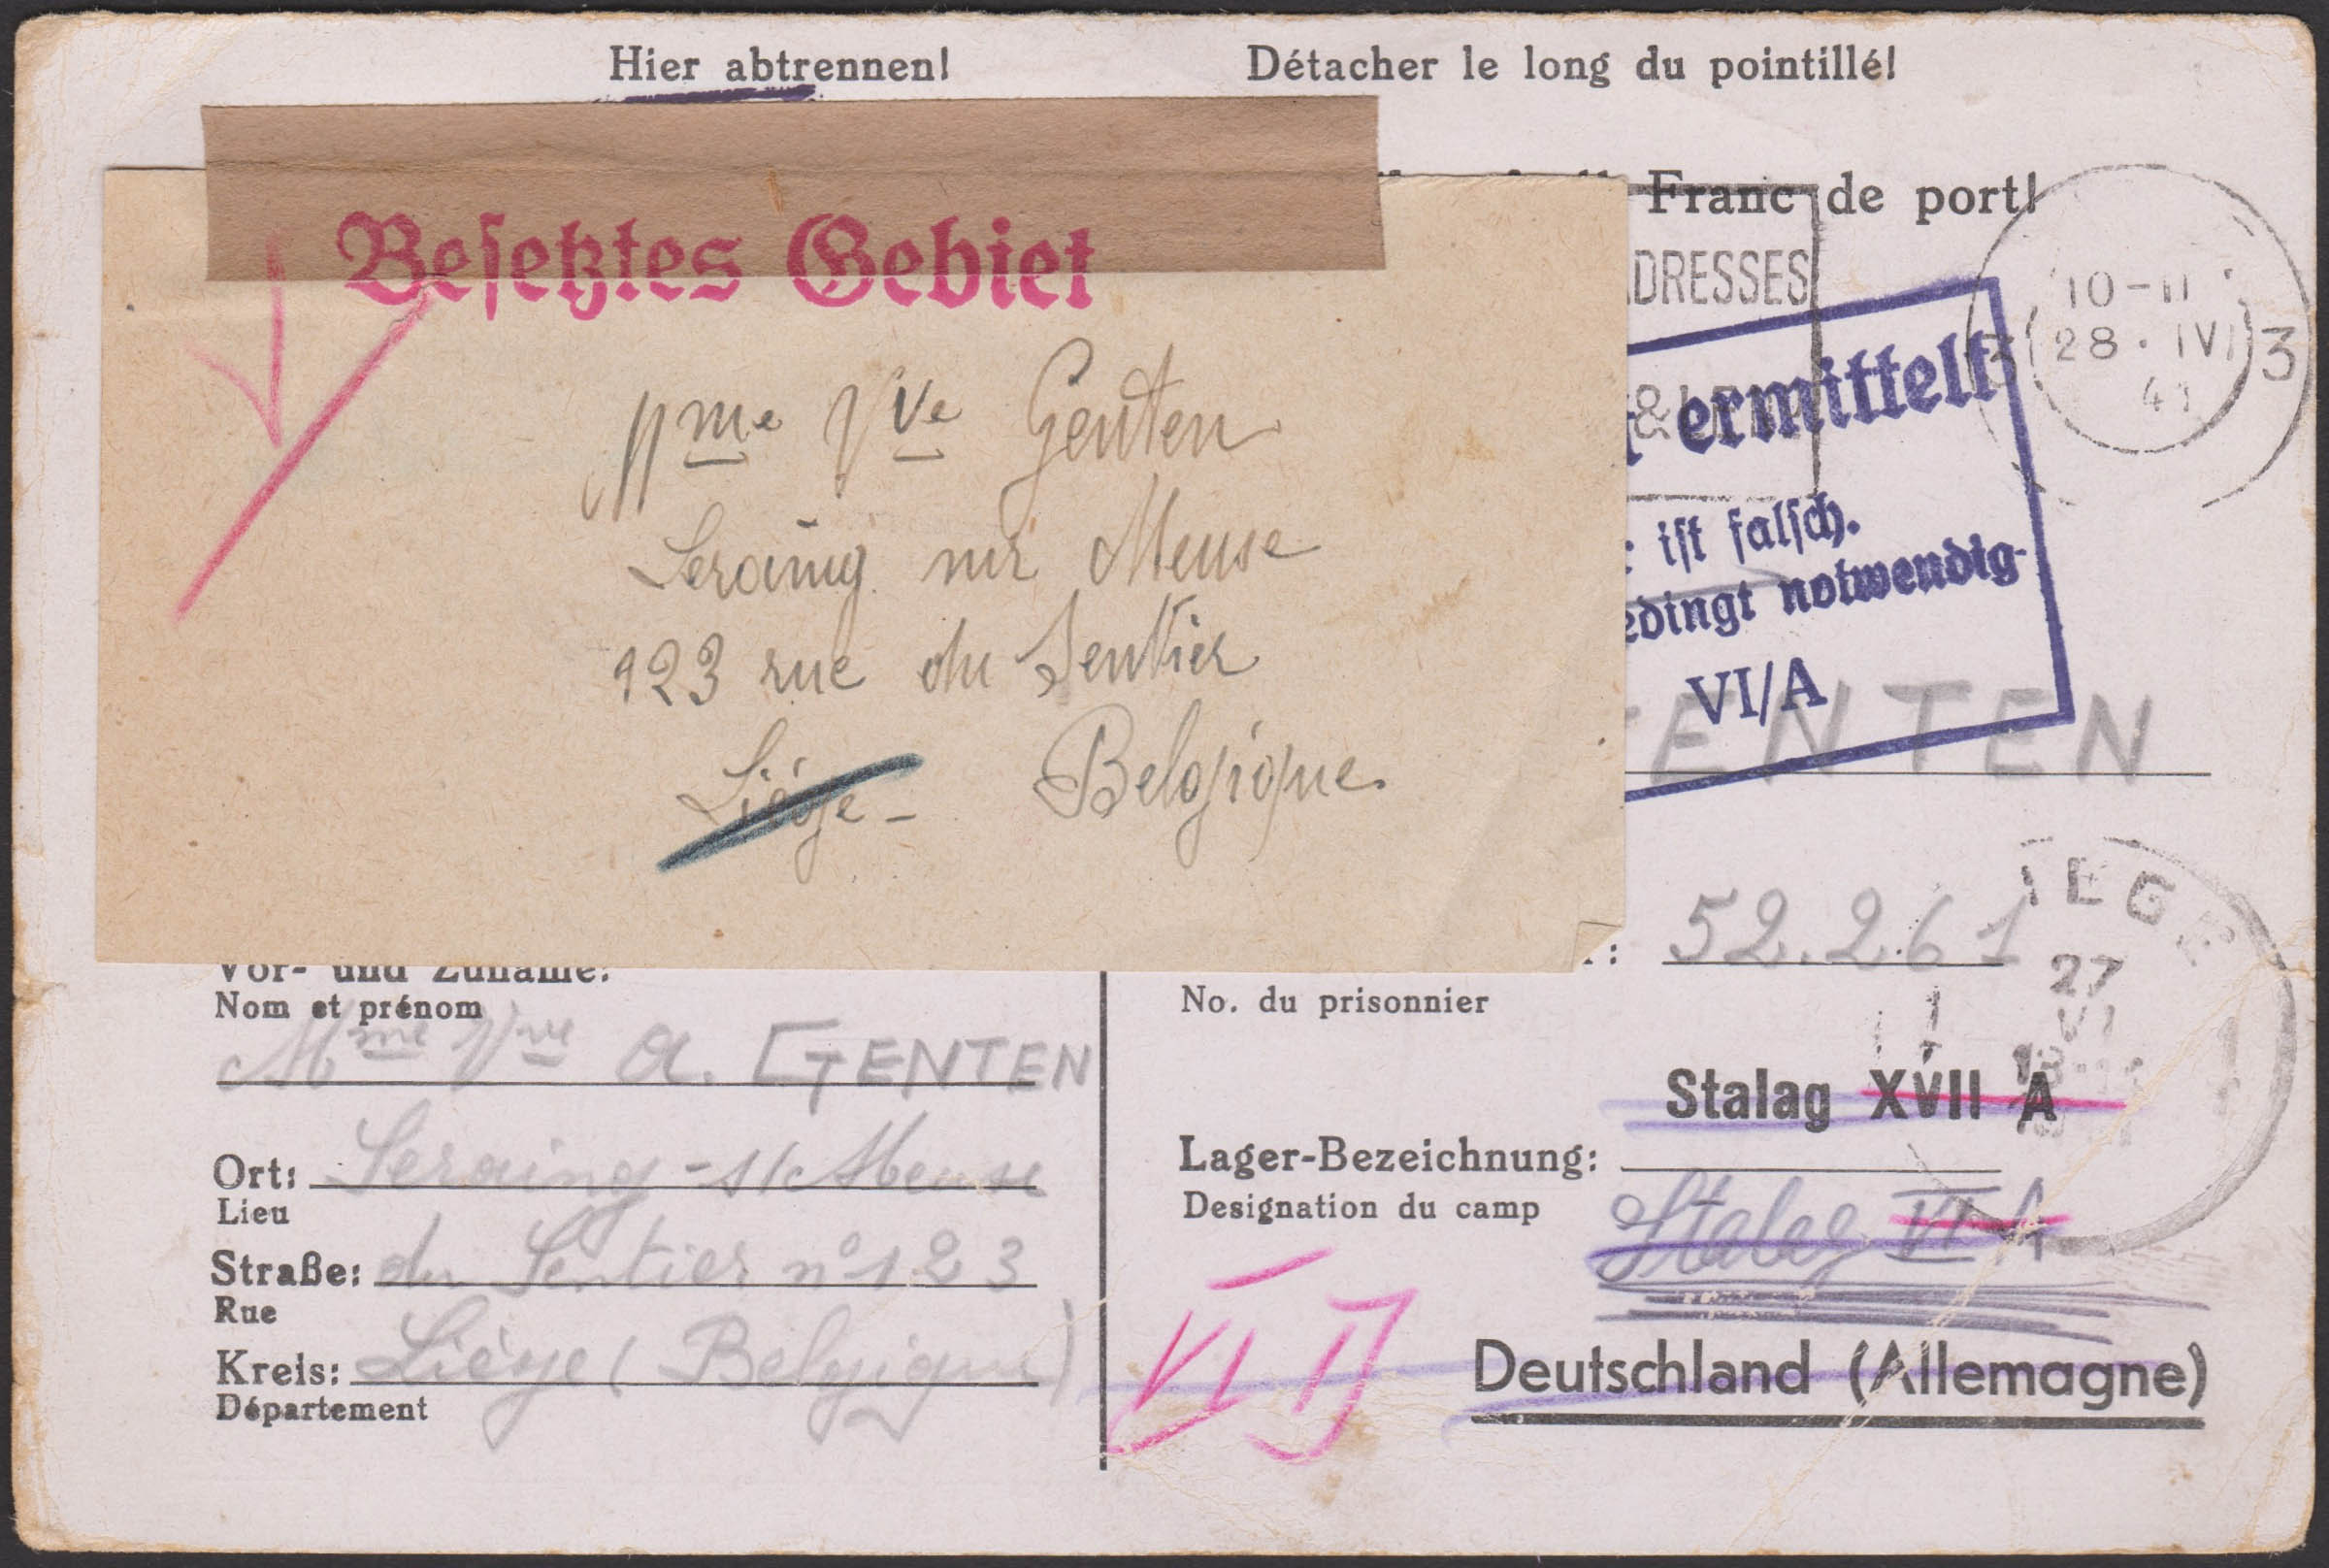 Hier abtrennen! Détacher le long du pointillé!
Franc de port!
Besetztes Gebiet
DRESSES
10-11
28 · IV
41
3
ermittelt
&
ist falsch.
edingt notwendig
VI/A
Mme Vve Genten
Seraing sur Meuse
123 rue du Sentier
Liége - Belgique
ENTEN
IEGE
27
VI
52.261
Vor- und Zuname:
Nom et prénom
No. du prisonnier
Mme Vve A. GENTEN
Stalag XVII A
Ort: Seraing - s/Meuse
Lieu
Lager-Bezeichnung:
Designation du camp
Stalag VI A
Straße: du Sentier n° 123
Rue
VI J
Kreis: Liége (Belgique)
Département
Deutschland (Allemagne)